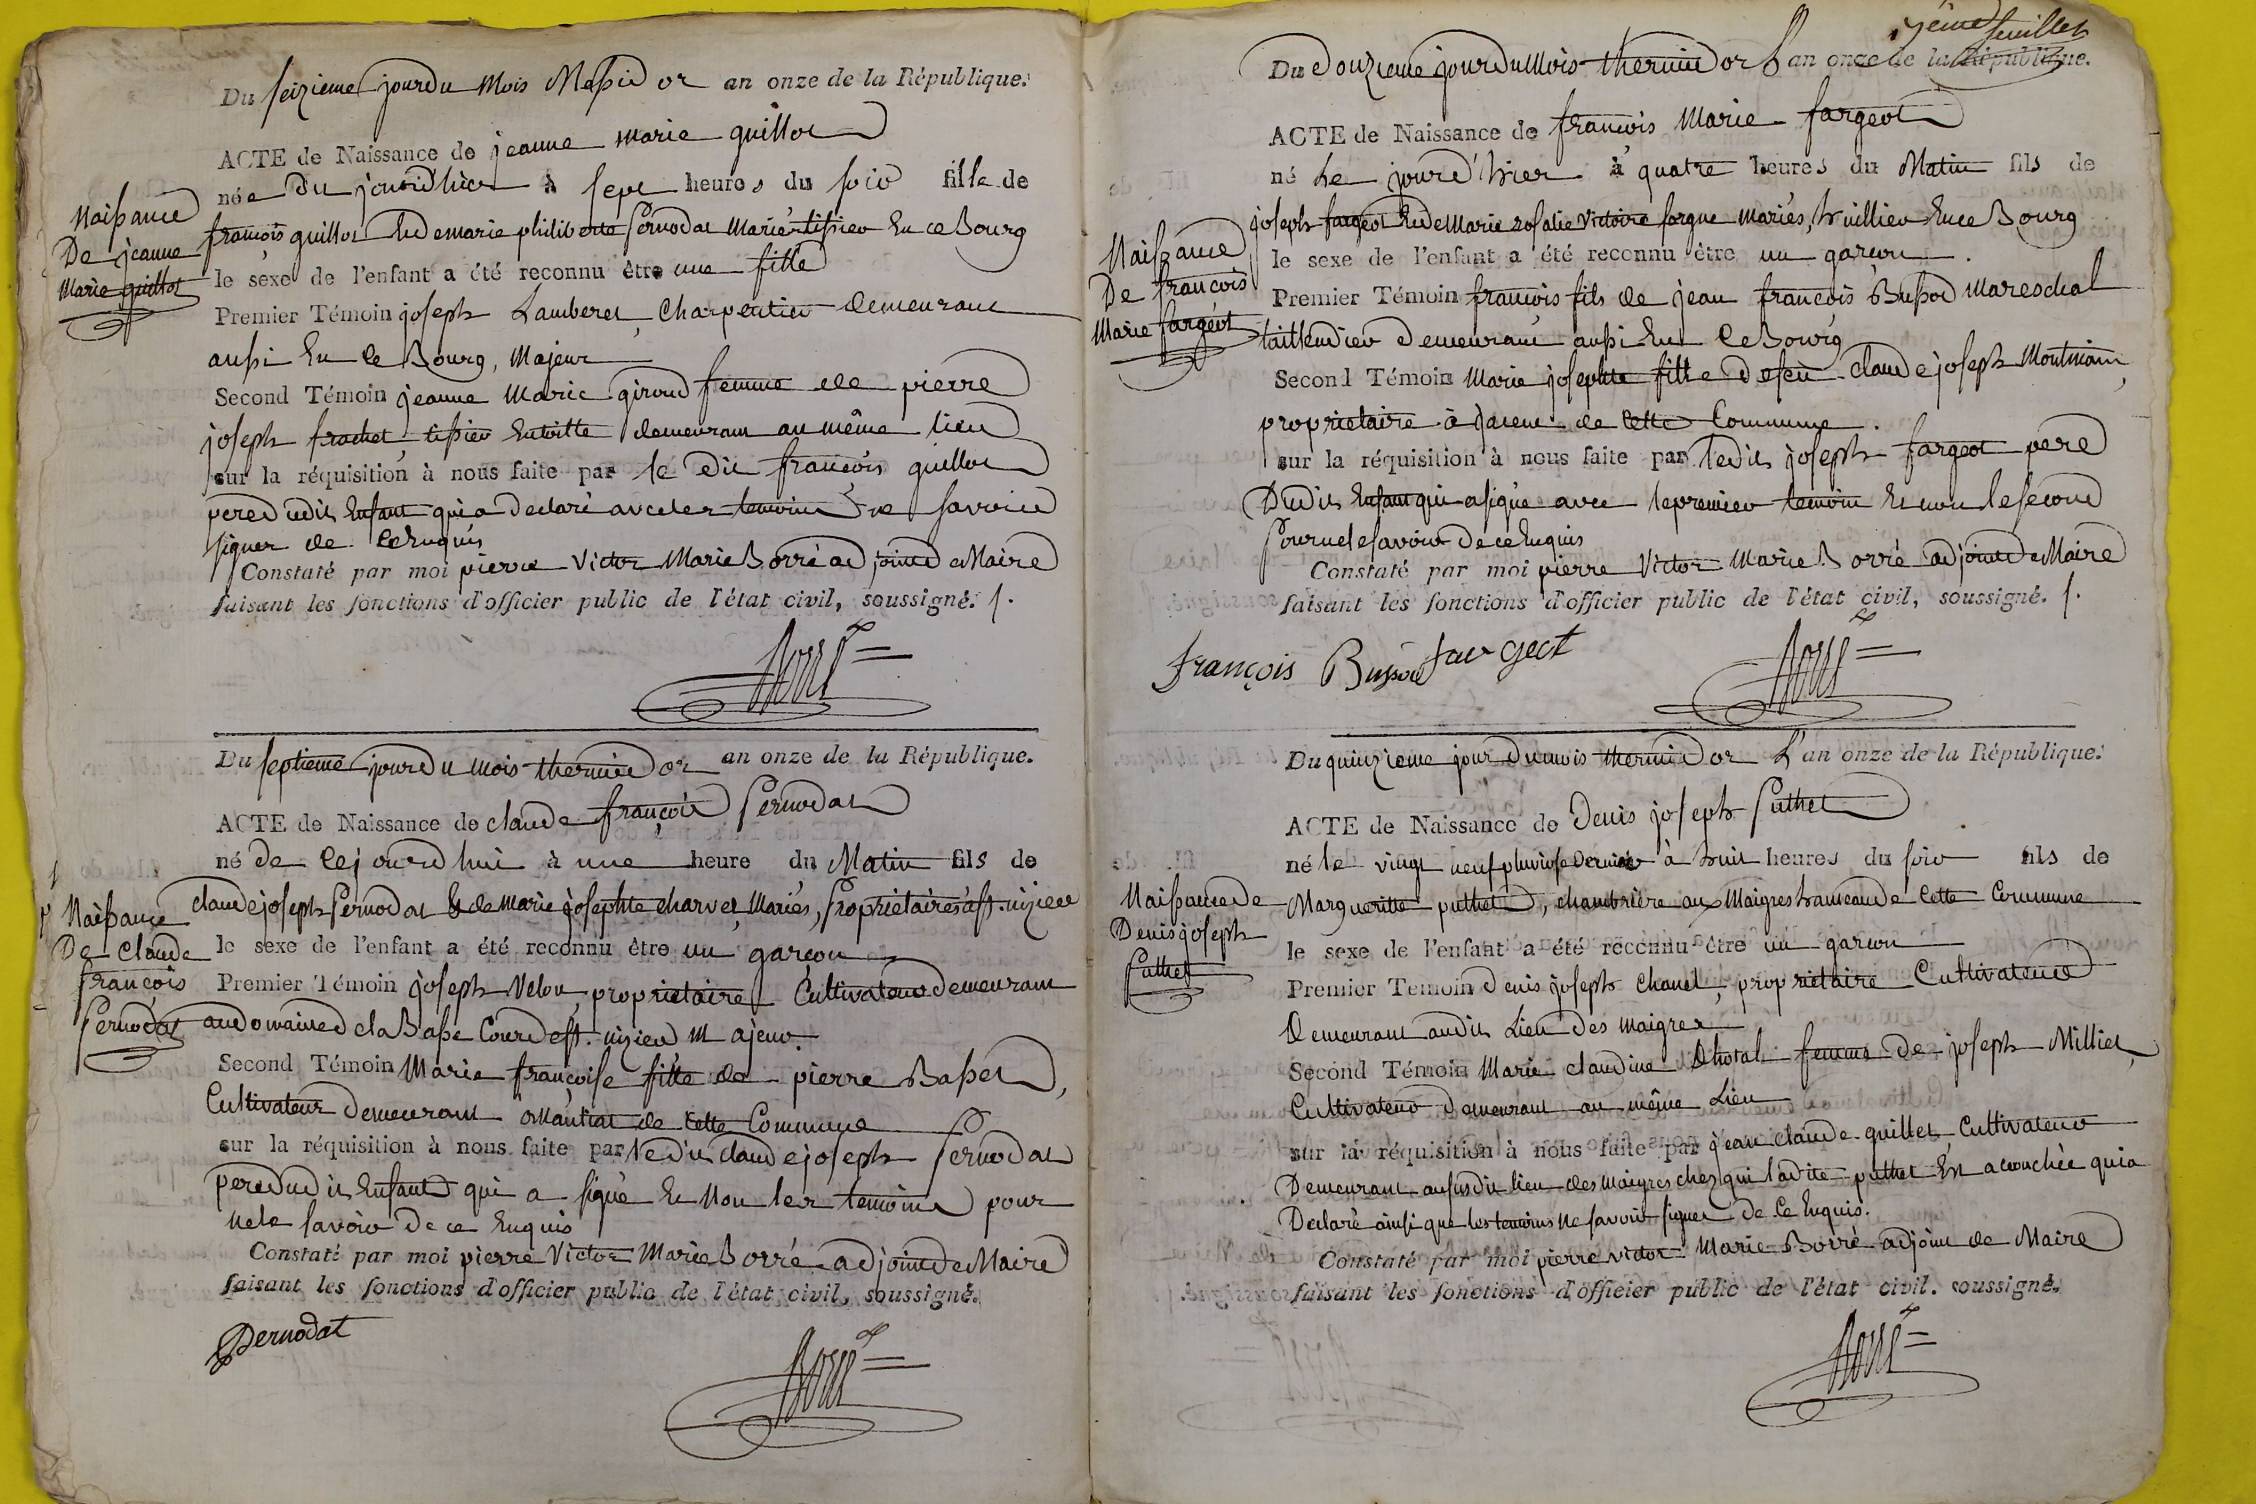 Du seizieme jour du Mois Messidor an onze de la République.
ACTE de Naissance de jeanne marie guillot
née du jourd'huier à sept heures du soir fille de
françois guillot et de marie philiberte Pernodat Mariés tissier en ce Bourg
le sexe de l'enfant a été reconnu être une fille
Premier Témoin joseph Lamberet, Charpentier demeurant
aussi en ce Bourg, Majeur
Second Témoin jeanne Marie giroud femme de pierre
joseph frachet tissier en toille demeurant au même lieu
sur la réquisition à nous faite par le dit françois guillot
pere dudit enfant qui a declaré avec les temoins ne savoir
signer de ce enquis
Constaté par moi pierre Victor Marie Borré adjoint de Maire
faisant les fonctions d'officier public de l'état civil, soussigné.
Naissance
De jeanne
Marie guillot
Borré
Du septieme jour du mois thermidor an onze de la République.
ACTE de Naissance de claude françois Pernodat
né de cejourd'hui à une heure du Matin fils de
claude joseph Pernodat et de marie josephte charvet Mariés, Proprietaires à st. nizier
le sexe de l'enfant a été reconnu être un garçon
Premier Témoin joseph Velon, proprietaire Cultivateur demeurant
au domaine de la Basse Cour de st. nizier Majeur.
Second Témoin Marie françoise fille de pierre Basset,
Cultivateur demeurant à Mantiat de cette Commune
sur la réquisition à nous faite par ledit claude joseph Pernodat
pere dudit enfant qui a signé et Non les temoins pour
ne le savoir de ce enquis
Constaté par moi pierre Victor Marie Borré adjoint de Maire
faisant les fonctions d'officier public de l'état civil, soussigné.
Naissance
De claude
françois
Pernodat
Pernodat
Borré
7eme feuillet
Du douzieme jour du Mois thermidor L'an onze de la République.
ACTE de Naissance de françois Marie fargeot
né Le jour d'hier à quatre heures du Matin fils de
joseph fargeot et de Marie rosalie Victoire fargue mariés, huillier en ce Bourg
le sexe de l'enfant a été reconnu être un garçon.
Premier Témoin françois fils de jean françois Bussod Mareschal
taillendier demeurant aussi en ce Bourg
Second Témoin Marie josephte fille de feu claude joseph Montmain,
proprietaire à de cette Commune.
sur la réquisition à nous faite par ledit joseph fargeot pere
Dudit enfant qui a signé avec le premier temoin et non le second
Pour ne le savoir de ce enquis
Constaté par moi pierre Victor Marie Borré adjoint de Maire
faisant les fonctions d'officier public de l'état civil, soussigné.
Naissance
De françois
Marie fargeot
françois Bussod fargeot
Borré
Du quinzieme jour du mois thermidor L'an onze de la République.
ACTE de Naissance de Denis joseph Puthet
né le vingt neuf pluviose dernier à huit heures du soir fils de
Margueritte puthet, chambrière aux Maigres hameau de cette Commune
le sexe de l'enfant a été reconnu être un garçon
Premier Temoin denis joseph chanel, proprietaire Cultivateur
demeurant audit Lieu des maigres
Second Témoin Marie claudine Chotal femme de joseph Milliet,
Cultivateur demeurant au même Lieu
sur la réquisition à nous faite par jean claude guillet Cultivateur
Demeurant au susdit lieu des maigres chez qui ladite puthet est acouchée qui a
Declaré ainsi que les temoins ne savoir signer de ce enquis.
Constaté par moi pierre victor Marie Borré adjoint de Maire
faisant les fonctions d'officier public de l'état civil. soussigné.
Naissance de
Denis joseph
Puthet
Borré